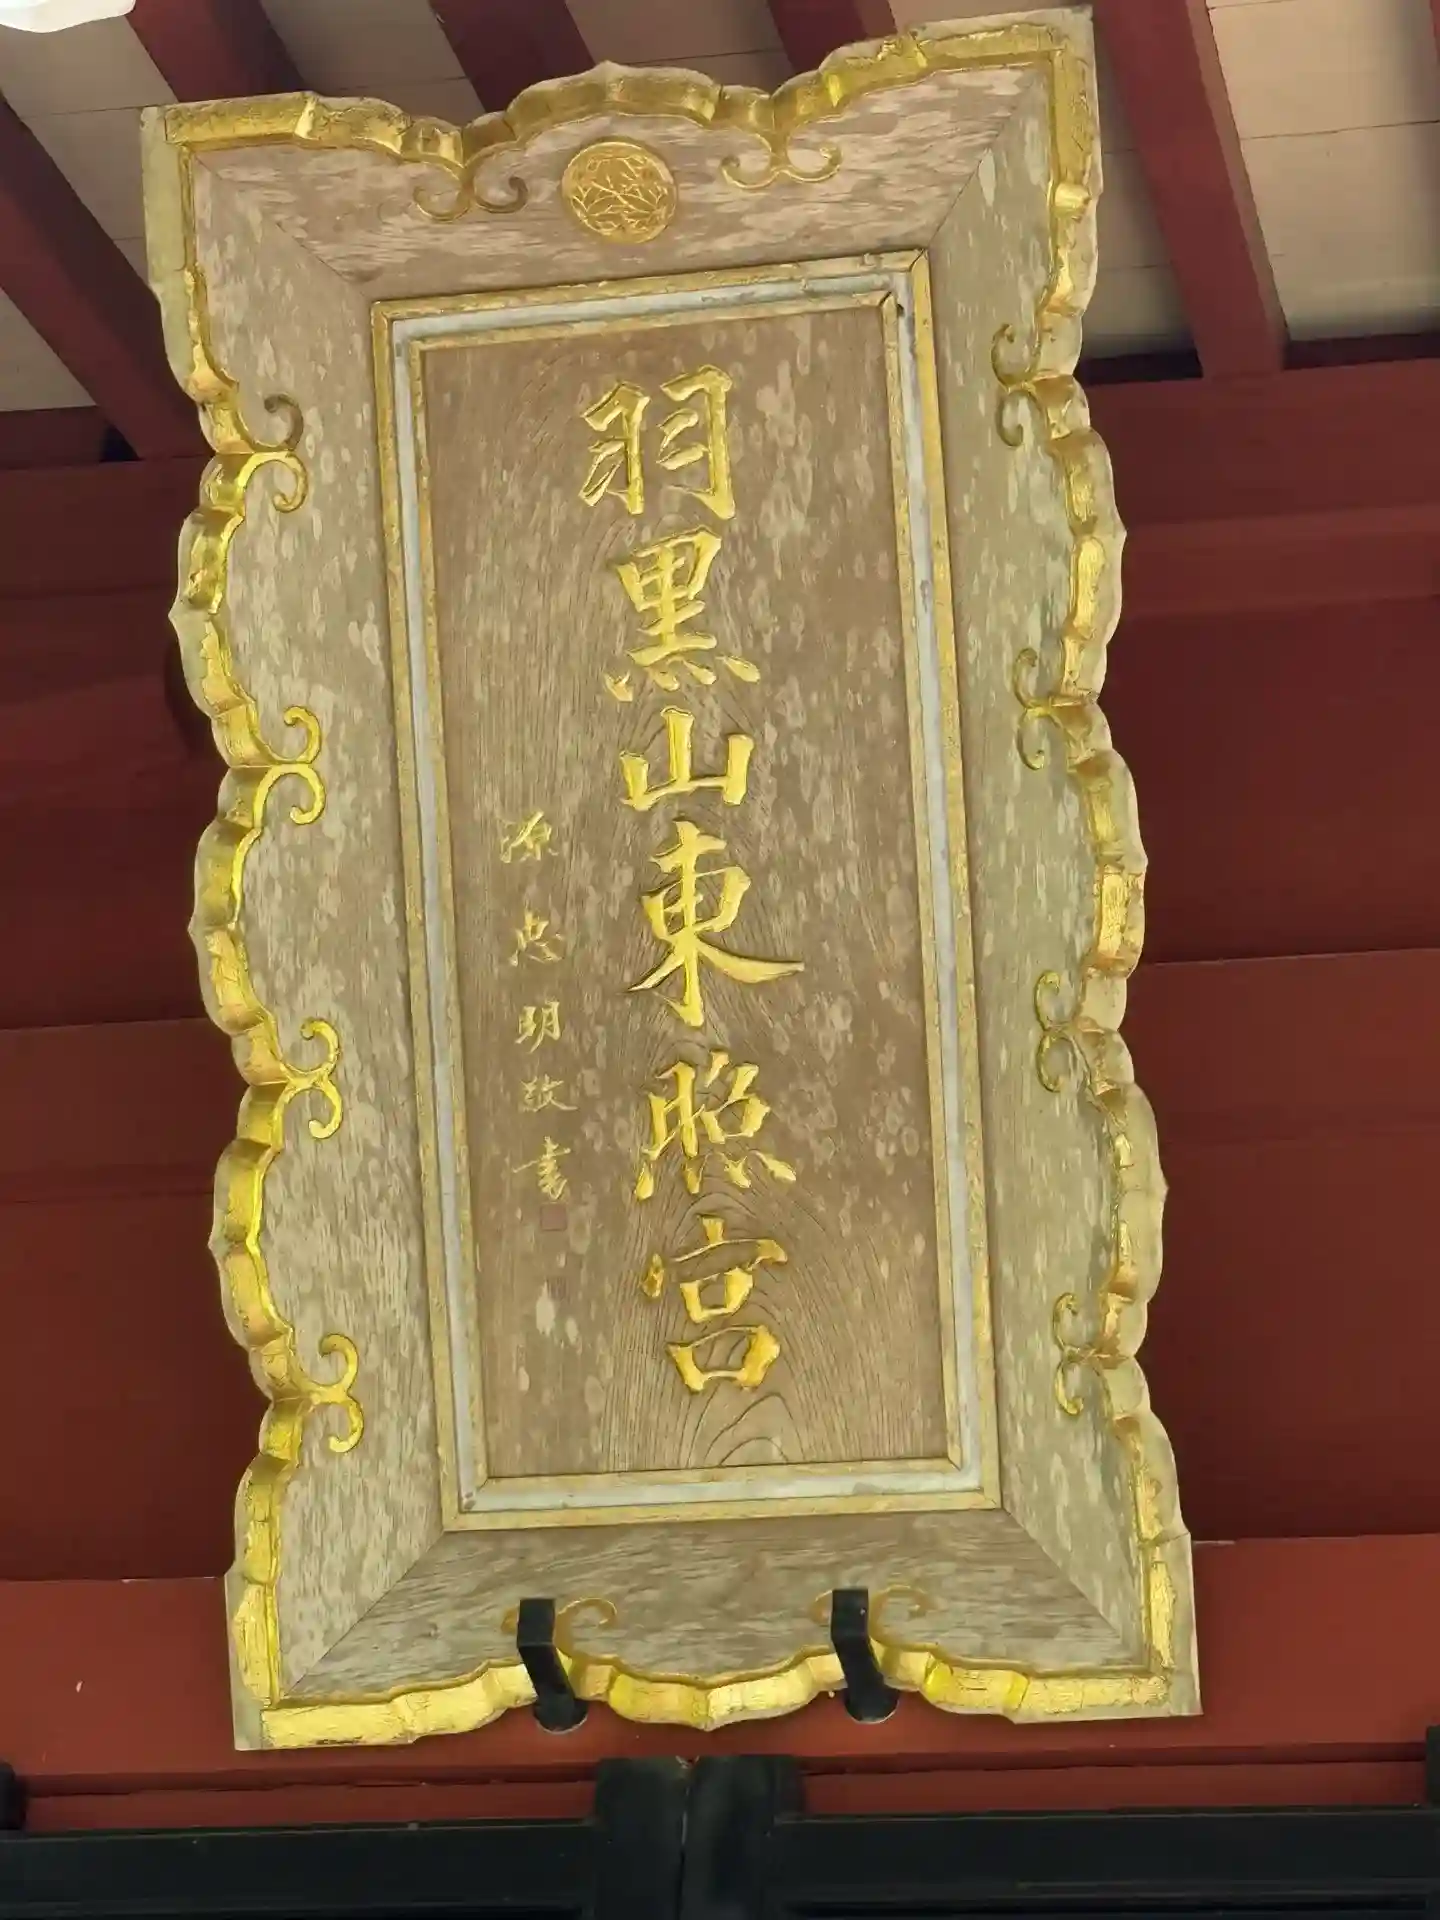 羽黒山東照宮
源忠明敬書